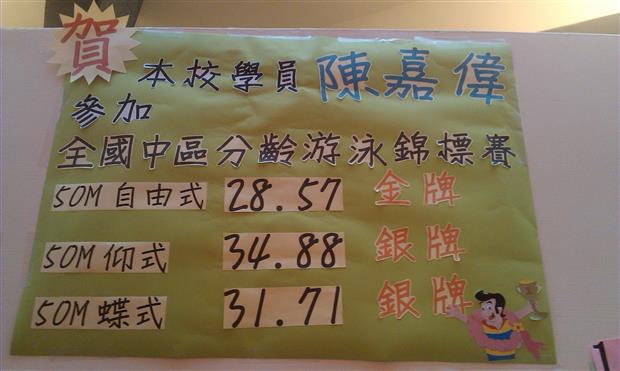 賀
本校學員 陳嘉偉
參加
全國中區分齡游泳錦標賽
50M 自由式 28.57 金牌
50M 仰式 34.88 銀牌
50M 蝶式 31.71 銀牌